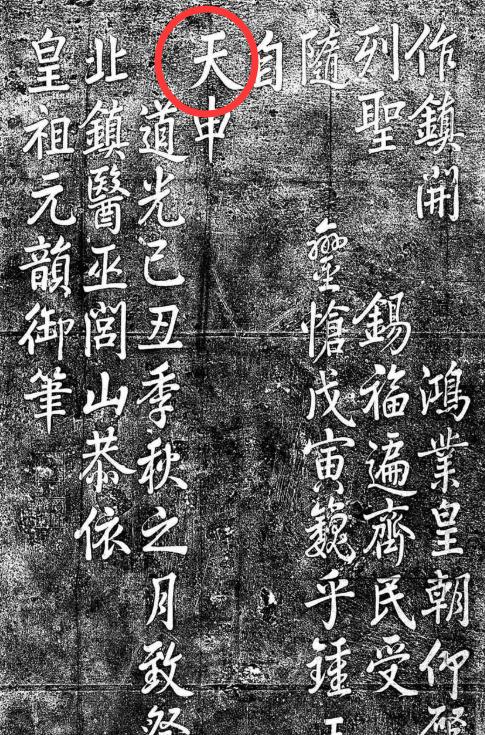 作鎮開鴻業皇朝仰
列聖錫福遍齊民受
隨鑾愴戊寅巍乎鍾
自
天申
道光己丑季秋之月致祭
北鎮醫巫閭山恭依
皇祖元韻御筆